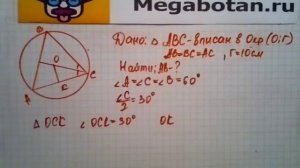 Megabotan.ru
Дано: Δ ABC - вписан в Окр (O; r)
AB=BC=AC, r=10см
Найти: AB-?
∠A=∠C=∠B=60°
∠C/2=30°
B
O
A
C
Δ OCK ∠OCK=30° OK